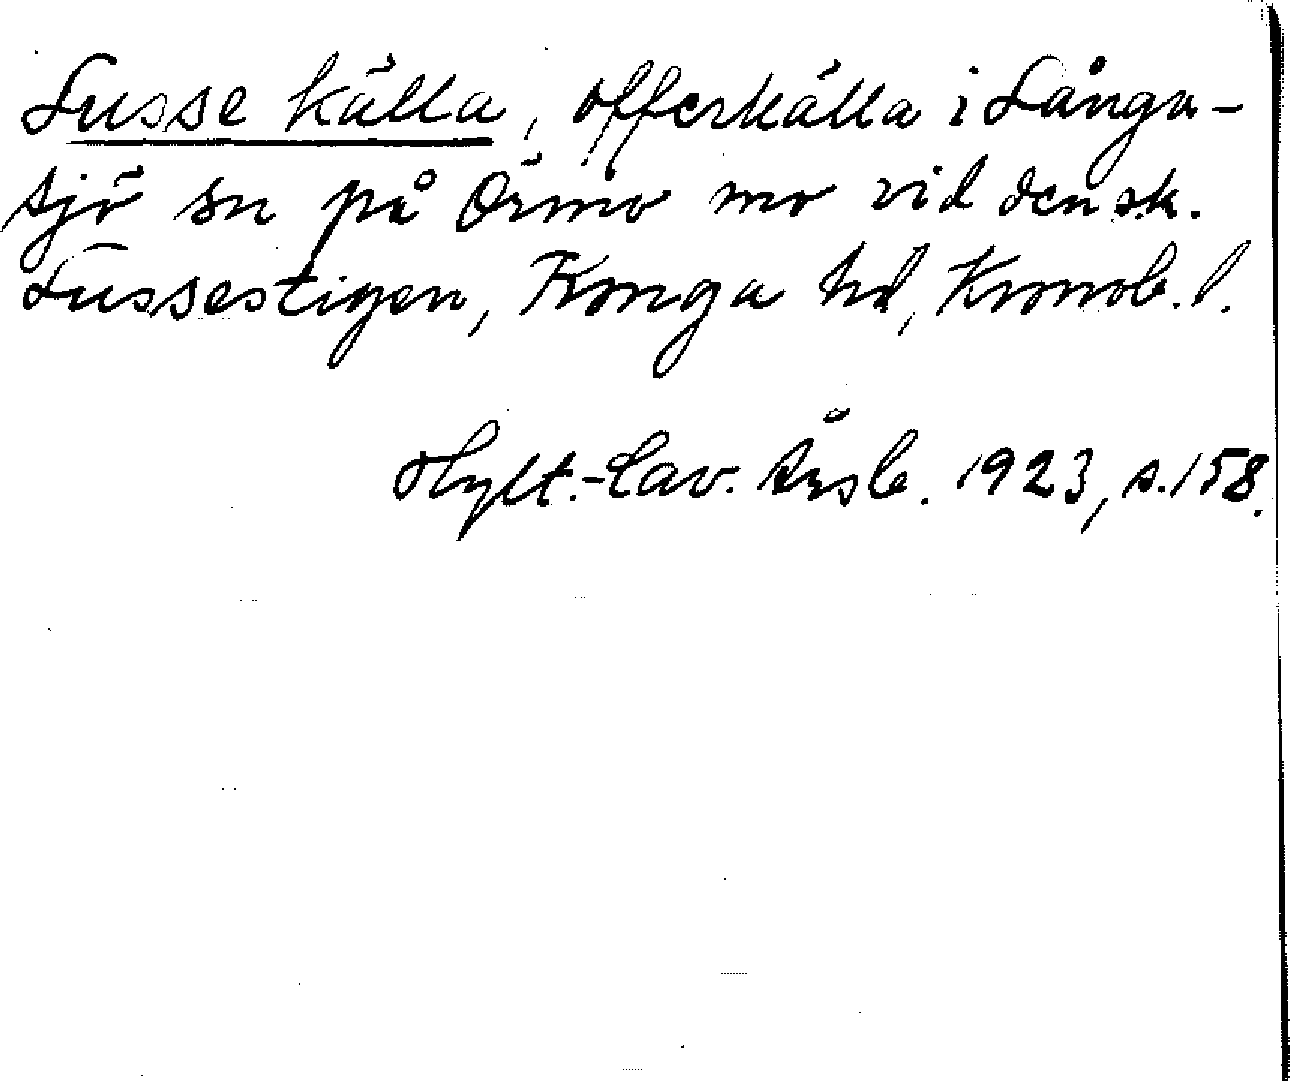 Lusse källa, offerkälla i Långa-
sjö sn på Örmo mo vid den sk.
Lussestigen, Konga hd, Kronob. l.
Hylt.-Cav. Årsb. 1923, s. 158.